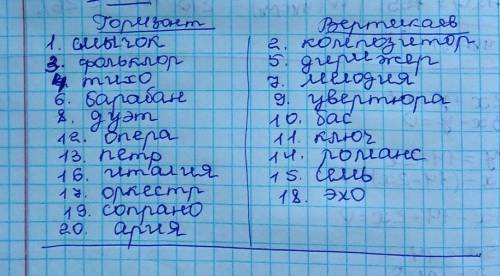 Горизонт
1. смычок
3. фольклор
4 тихо
6. барабан
8. дуэт
12. опера
13. петр
16. италия
17. оркестр
19. сопрано
20. ария
Вертикаев
2. композитор
5. дирижер
7. мелодия
9. увертюра
10. бас
11. ключ
14. романс
15. семь
18. эхо